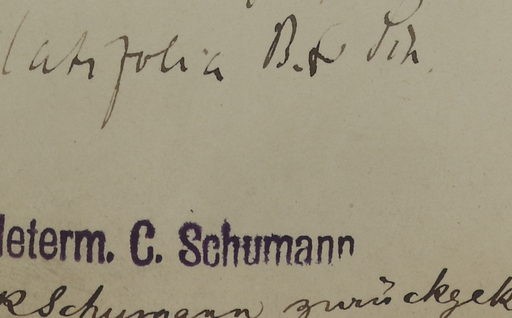 latifolia B. & Sch.
determ. C. Schumann
K Schumann zurückgek